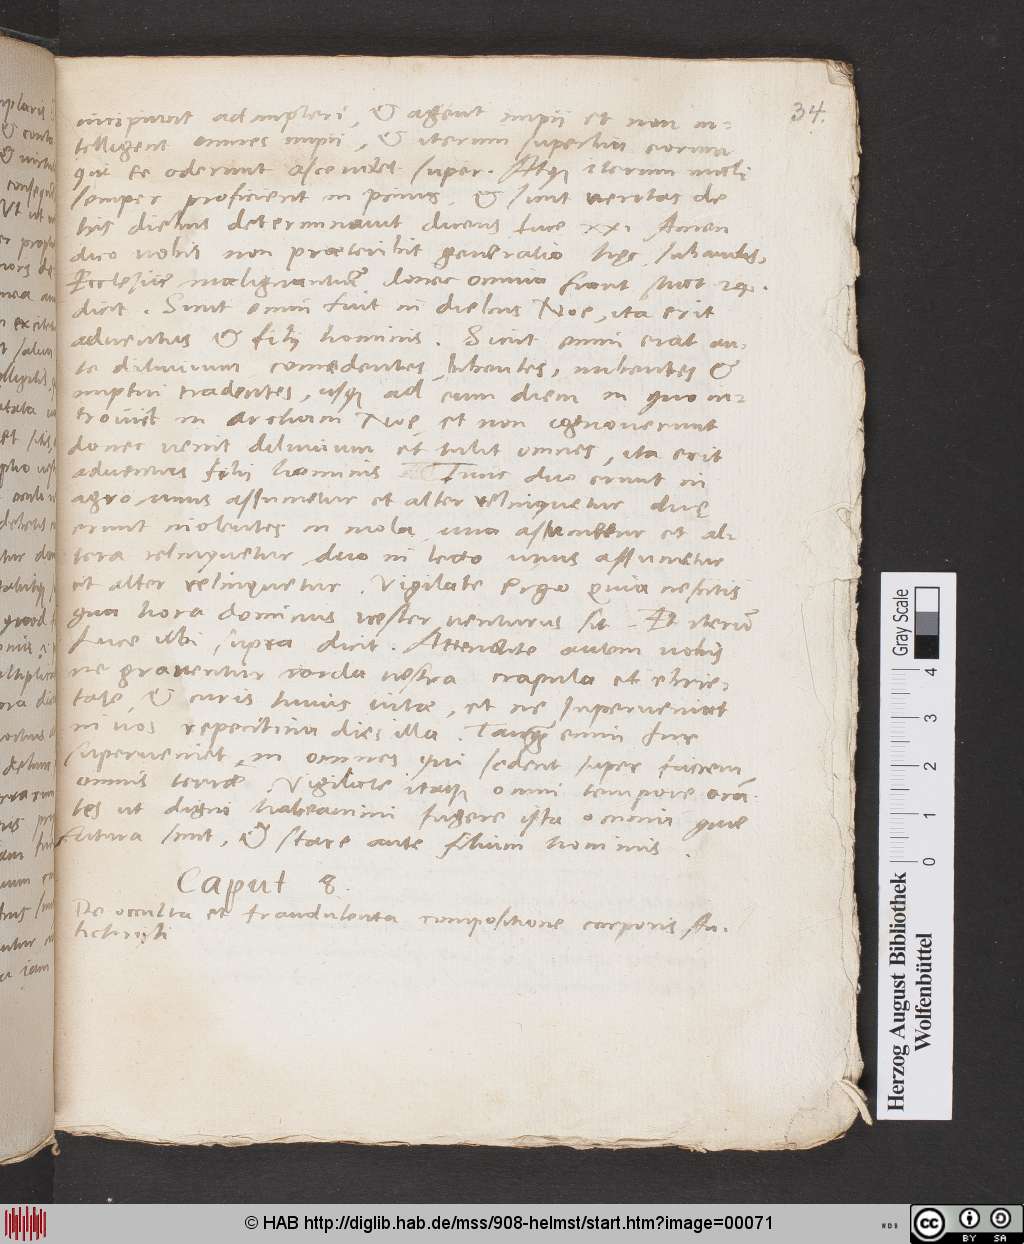 34.
incipiunt adimpleri, & agent impii et non in-
telligent omnes impii, & iterum superbia eorum
qui te oderunt ascendet super. Atq; iterum mali
semper proficient in peius. & sicut veritas de
his diebus determinavit dicens Luce xxi Amen
dico vobis non præteribit generatio hęc,
Ecclesiæ malignantiũ donec omnia fiant sicut 24.
dicit. Sicut enim fuit in diebus Noe, ita erit
adventus & filij hominis. Sicut enim erat an-
te diluvium comedentes, bibentes, nubentes &
nuptui tradentes, usq; ad eum diem in quo in-
trovit in archam Noe, et non cognoverunt
donec venit diluvium et tulit omnes, ita erit
adventus filij hominis Tunc duo erunt in
agro, unus assumetur et alter relinquetur duę
erunt molentes in mola, una assumetur et al-
tera relinquetur, duo in lecto unus assumetur
et alter relinquetur. Vigilate ergo quia nescitis
qua hora dominus vester venturus sit. Et iterũ
Luce ubi supra dicit. Attendite autem vobis
ne graventur corda vestra crapula et ebrie-
tate, & curis huius vitæ, et ne superveniat
in vos repentina dies illa. Tanq̃ enim
superveniet, in omnes qui sedent super faciem
omnis terræ. Vigilate itaq; omni tempore orã-
tes ut digni habeamini fugere ista omnia quæ
futura sunt, & stare ante filium hominis.
Caput 8.
De occulta et fraudulenta compositione corporis An-
tichristi
Gray Scale
0 1 2 3 4
Herzog August Bibliothek
Wolfenbüttel
© HAB http://diglib.hab.de/mss/908-helmst/start.htm?image=00071
WDB
cc BY SA